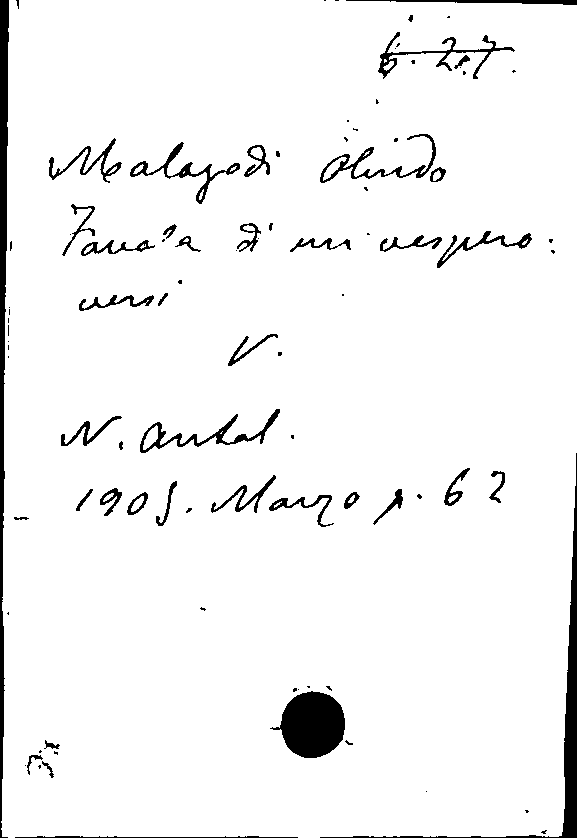 6. 2.7.
Malagodi Olindo
Favola di un vespero:
versi
V.
N. Antol.
1905. Marzo p. 62